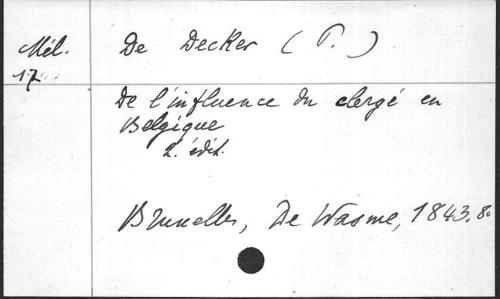 Mél.
17.
De Decker (P.)
De l'influence du clergé en
Belgique
2. édit.
Bruxelles, De Wasme, 1843. 8°